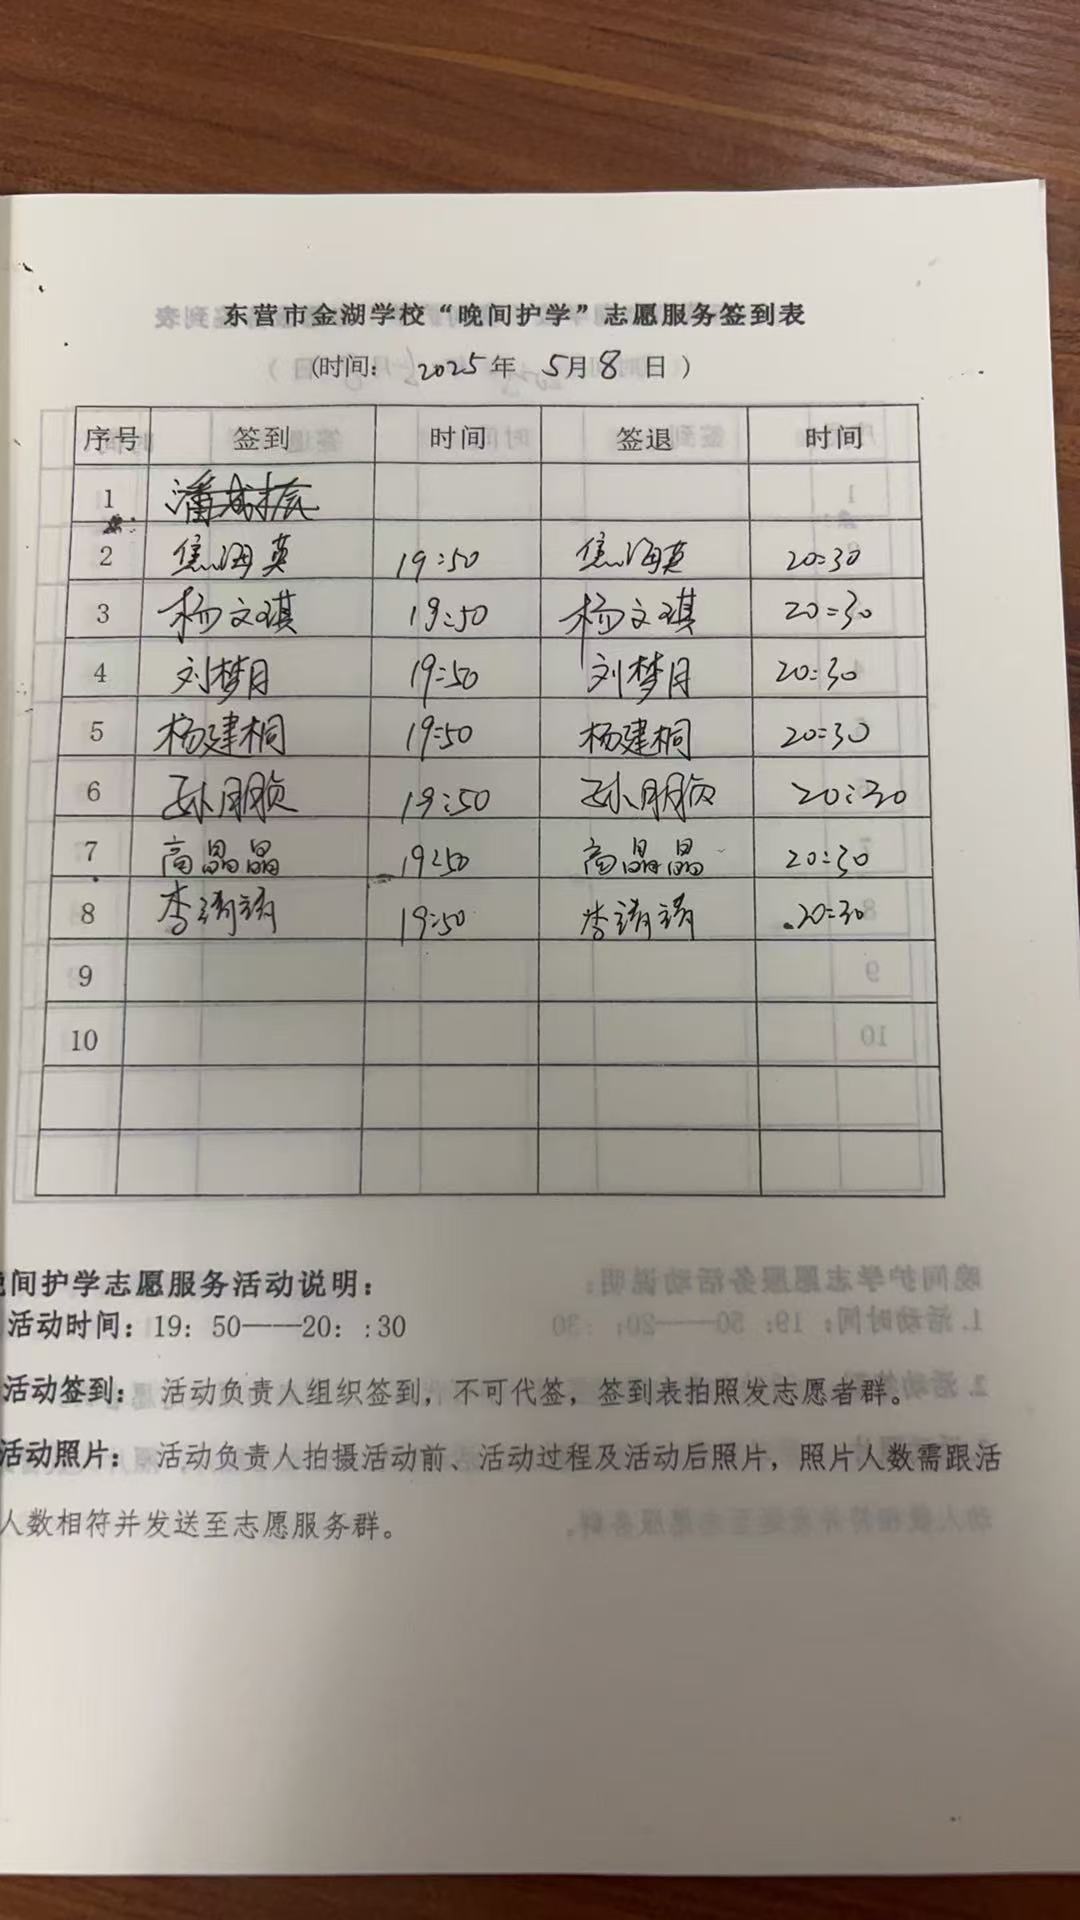 东营市金湖学校“晚间护学”志愿服务签到表
(时间: 2025年 5月8日)
序号 签到 时间 签退 时间
1
2 焦海英 19:50 焦海英 20:30
3 杨文琪 19:50 杨文琪 20:30
4 刘梦月 19:50 刘梦月 20:30
5 杨建桐 19:50 杨建桐 20:30
6 孙朋贞 19:50 孙朋贞 20:30
7 高晶晶 19:50 高晶晶 20:30
8 李靖靖 19:50 李靖靖 20:30
9
10
间护学志愿服务活动说明:
活动时间: 19: 50——20: :30
活动签到: 活动负责人组织签到, 不可代签, 签到表拍照发志愿者群。
活动照片: 活动负责人拍摄活动前、活动过程及活动后照片, 照片人数需跟活
人数相符并发送至志愿服务群。